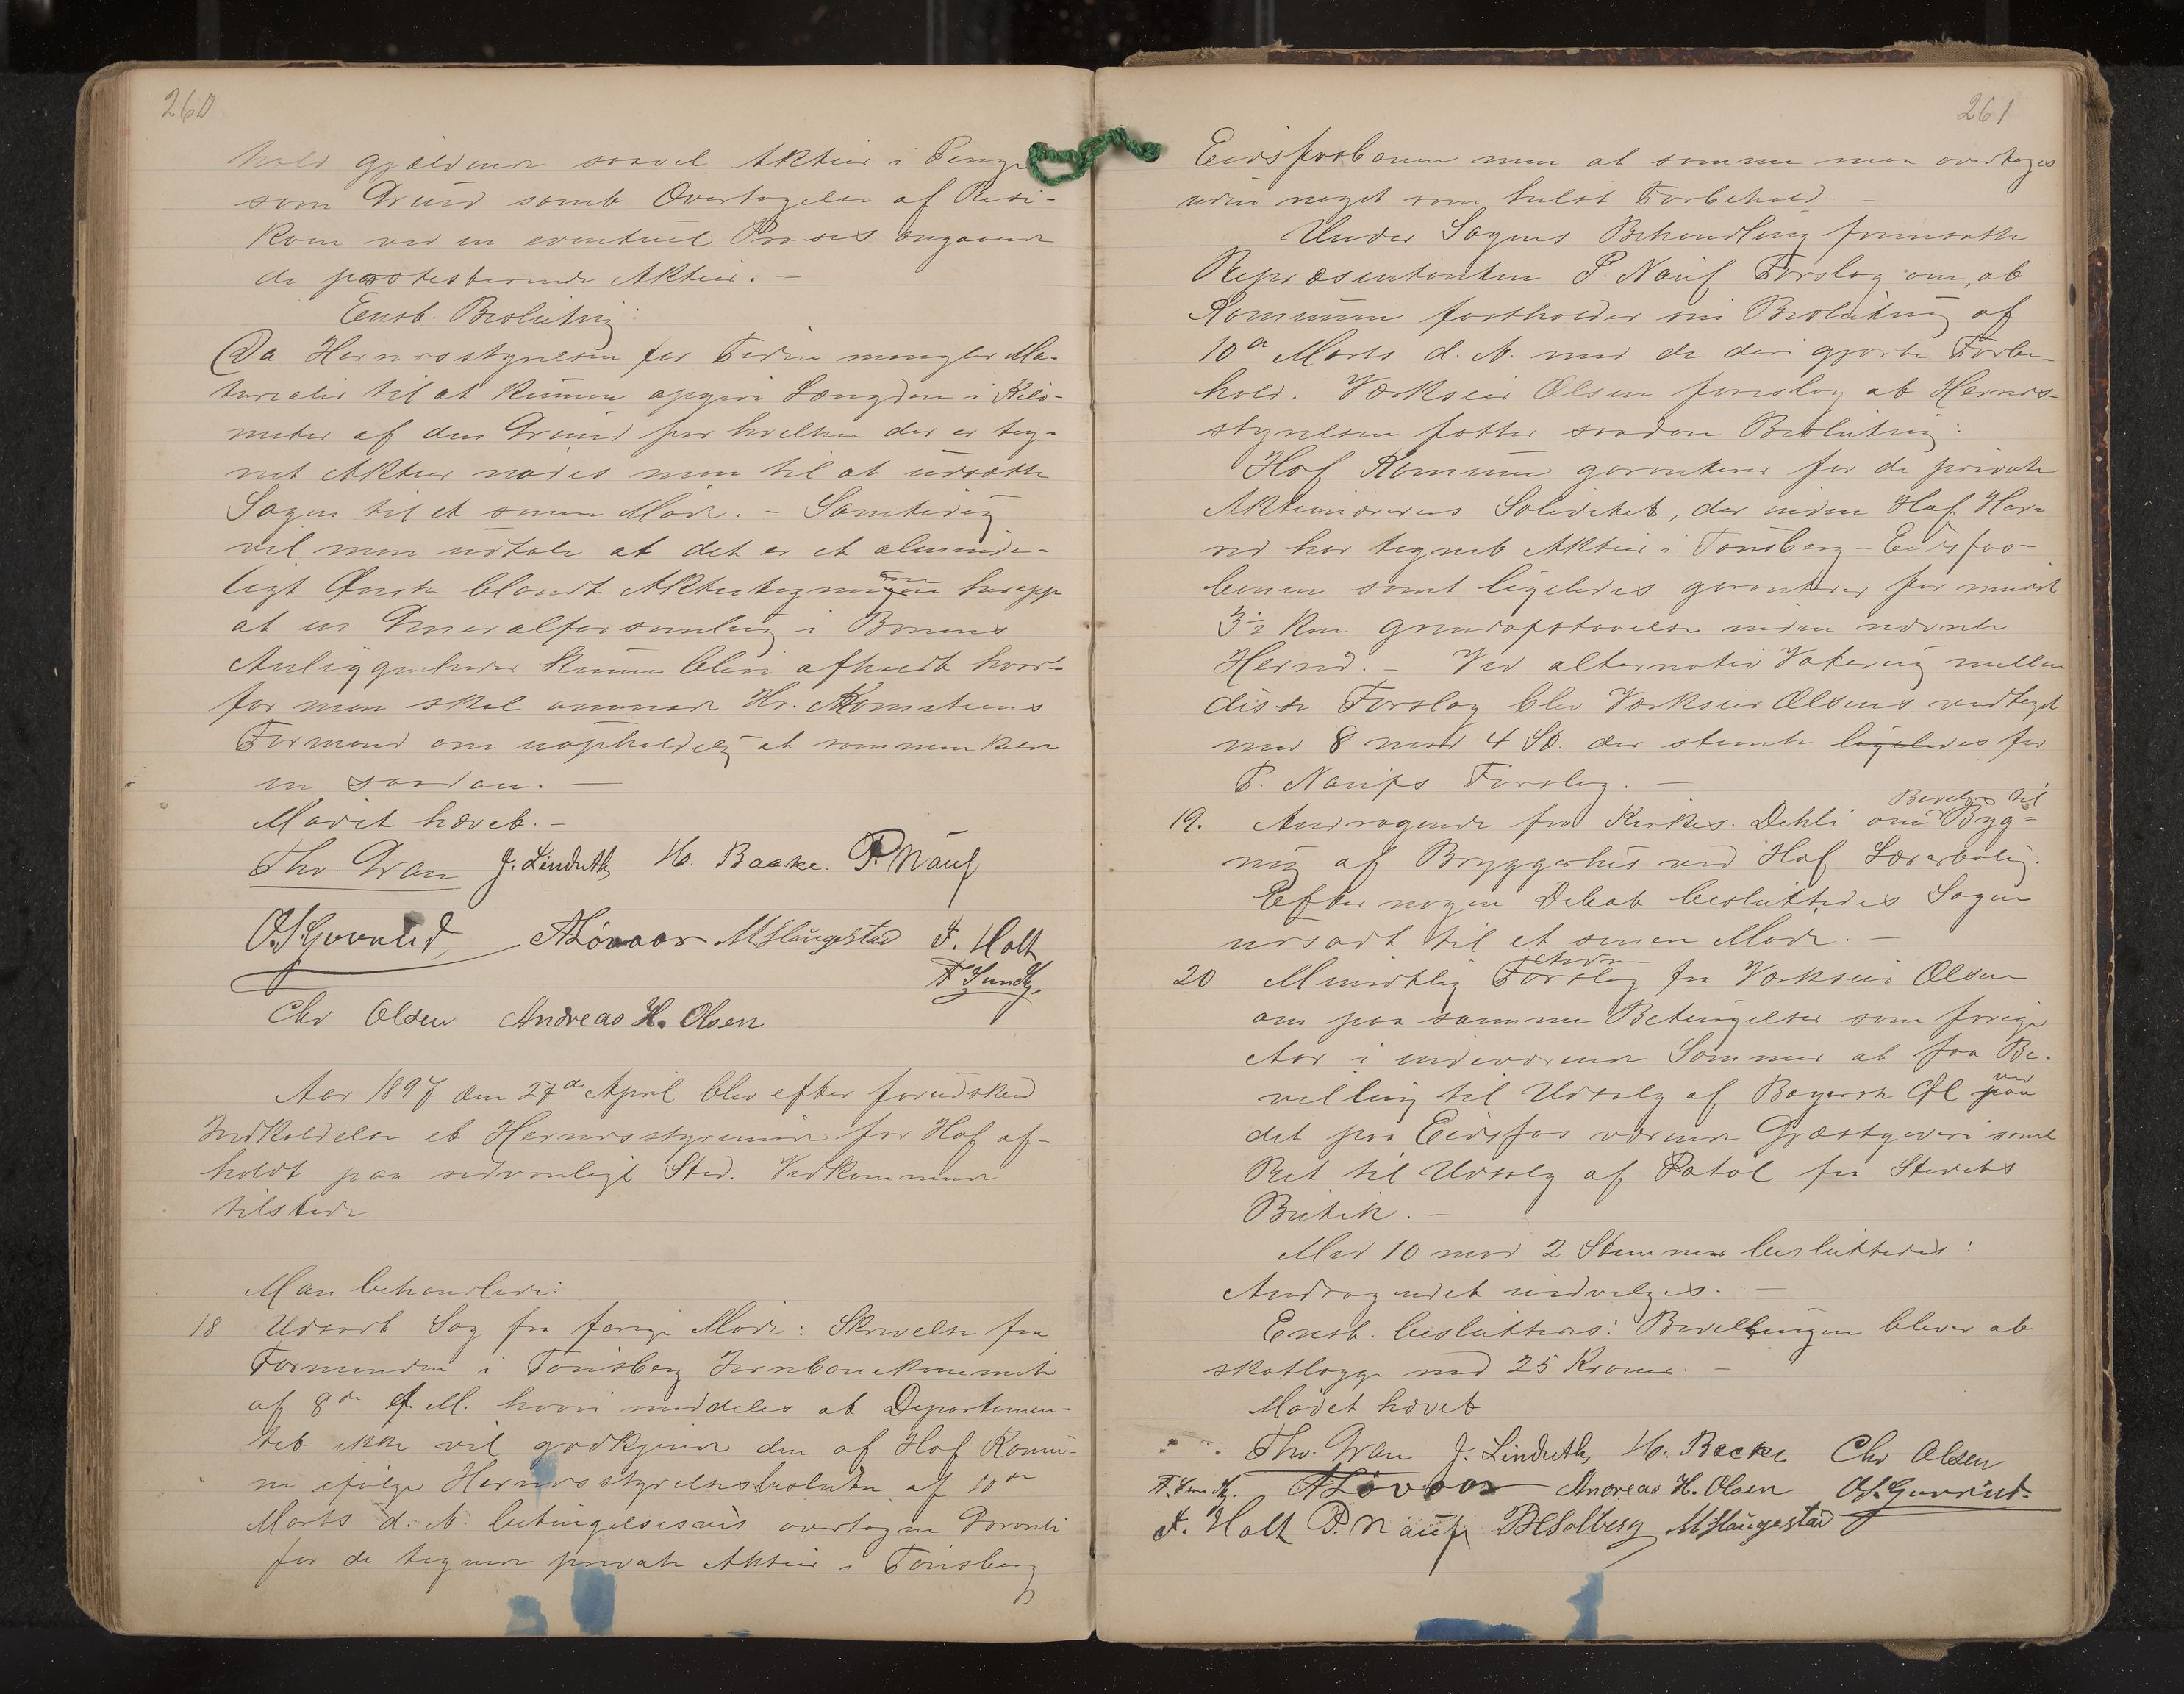 260
hold gjældende saavel Aktier i Penge
som Grund samt Overtagelse af Risi-
koen ved en eventuel Proses angaaende
de protesterende Aktier. –
Enst. Beslutning:
Da Herredsstyrelsen for Tiden mangler Ma-
terialer til at kunne opgive Længden i Kilo-
meter af den Grund for hvilken der er teg-
net Aktier nødes man til at udsætte
Sagen til et senere Møde. – Samtidig
vil man udtale at det er et alminde-
ligt Ønske blandt Aktietegnerne heroppe
at en Generalforsamling i Banens
Anliggender kunne blive afholdt hvor-
for man skal anmode Hr. Komiteens
Formand om uopholdelig at sammenkalde
en saadan. –
Mødet hævet. –
Thv. Gran J. Linduth H. Backe. P. Nauf
O. S. Gunnerød A Løvaas M Haugestad F. Holt
F Sundby.
Chr Olsen Andreas H. Olsen
Aar 1897 den 27de April blev efter forudskeed
Indkaldelse et Herredsstyremøde for Hof af-
holdt paa sedvanligt Sted. Vedkommende
tilstede
Man behandlede:
18 Udsadt Sag fra forrige Møde: Skrivelse fra
Formanden i Tønsberg Jernbanekomite
af 8de d. M. hvori meddeles at Departemen-
tet ikke vil godkjende den af Hof Komu-
ne ifølge Herredsstyrelsesbeslutn af 10de
Marts d. A. betingelsesvis overtagne Garanti
for de tegnede private Aktier i Tønsberg
261
Eidsfosbanen men at samme maa overtages
uden noget som helst Forbehold. –
Under Sagens Behandling fremsatte
Repræsentanten P. Nauf Forslag om, at
Komunen fastholder sin Beslutning af
10de Marts d. A. med de deri gjorte Forbe-
hold. Værkseier Olsen foreslog at Herreds-
styrelsen fatter saadan Beslutning:
Hof Komune garanterer for de private
Aktionærers Soliditet, der inden Hof Her-
red har tegnet Aktier i Tønsberg – Eidsfos-
banen samt ligeledes garanterer for mindst
3½ Km. grundafstaaelse inden nævnte
Herred. – Ved alternativ Votering mellem
disse Forslag blev Værkseier Olsens vedtaget
med 8 mod 4 St. der stemte ligeledes for
P. Naufs Forslag. –
19. Andragende fra Kirkes. Dehli om Bevilgn til Byg-
ning af Bryggerhus ved Hof Lærerbolig.
Efter nogen Debat besluttedes Sagen
udsadt til et senere Møde. –
20 Mundtlig Forslag Andra fra Værkseier Olsen
om paa samme Betingelser som forrige
Aar i indeværende Sommer at faa Be-
villing til Udsalg af Bayersk Øl paa ved
det paa Eidsfos værende Gjæstgiveri samt
Ret til Udsalg af Patøl fra Stedets
Butik. –
Med 10 mod 2 Stemmer besluttedes:
Andragendet indvilges. –
Enst. besluttedes: Bevillingen bliver at
skatlægge med 25 Kroner. –
Mødet hævet
Thv. Gran J. Linduth H. Backe Chr Olsen
F. Sundby. A Løvaas Andreas H. Olsen O. S. Gunnerød.
F. Holt P. Nauf D H Solberg M Haugestad